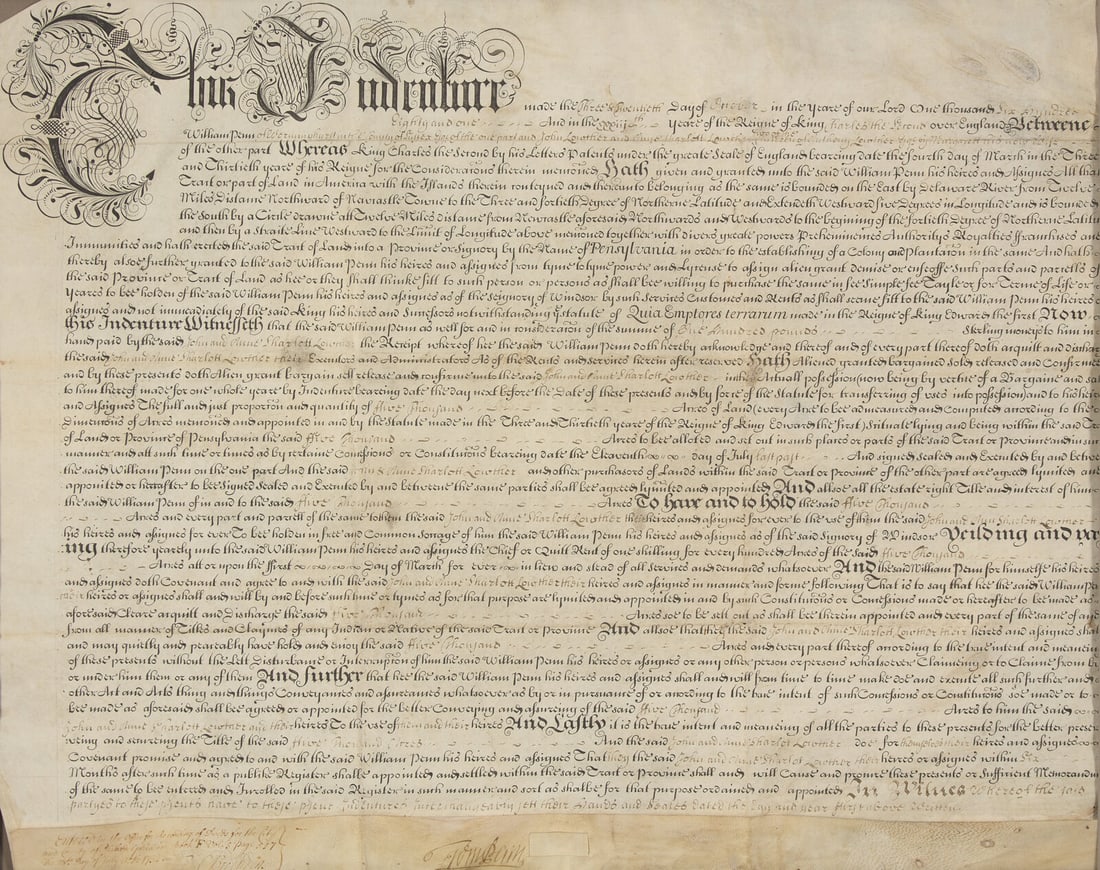 This Indenture made the Three & Twentieth Day of in the Yeare of our Lord One thousand Six Hundred
Eighty and one And in the xxxiijth Yeare of the Reigne of King Charles the Second over England Betweene
William Penn of in the County of Sussex Esqr of the one part and John Lowther and Anne Sharlott Lowther
of the other part Whereas King Charles the Second by his Letters Patents under the greate Seale of England beareing date the fourth day of March in the Three
and Thirtieth yeare of his Reigne for the Consideracions therein menconed Hath given and granted unto the said William Penn his heires and Assignes All that
Trait or part of Land in America with the Islands therein conteyned and thereunto belonging as the same is bounded on the East by Delaware River from Twelve
Miles Distame Northward of Newcastle Towne to the Three and fortieth Degree of Northerne Latitude and Extendeth Westward five Degrees in Longitude and is bounded
the South by a Circle drawne att Twelve Miles distame from Newcastle aforesaid Northwards and Westwards to the begining of the fortieth Degree of Northerne Latitu
and then by a Straite Line Westward to the Limitt of Longitude above menconed together with divers greate powers Preheminences Authoritys Royalties ffranchises and
Immunities and hath erected the said Trait of Land into a Province or Signory by the Name of Pensylvania in order to the establishing of a Colony and Plantacon in the same And hath
thereby alsoe further granted to the said William Penn his heires and assignes from tyme to tyme power and Lycense to assign alien grant demise or enfeoffe Such parts and parcells of
the said Province or Trait of Land as hee or they Shall thinke fitt to such person or persons as shall bee willing to purchase the same in fee Simple fee Tayle or for Terme of Life or
Yeares to bee holden of the said William Penn his heires and assignes as of the Seignory of Windsor by such Services Customes and Rents as shall seeme fitt to the said William Penn his heires
assignes and not immediately of the said King his heires and Successors notwithstanding ye statute of Quia Emptores terrarum made in the Reigne of King Edward the first Now
this Indenture Witnesseth that the said William Penn as well for and in consideration of the summe of One Hundred pounds Sterling money to him in
hand paid by the said John and Anne Sharlott Lowther the Receipt whereof hee the said William Penn doth hereby acknowledge and thereof and of every part thereof doth acquitt and discharg
the said John and Anne Sharlott Lowther their Executors and Administrators As of the Rents and Services herein after reserved Hath Aliened granted bargained Sold released and Confirmed
and by these presents doth Alien grant bargain sell release and confirme unto the said John and Anne Sharlott Lowther in their Actuall possession now being by vertue of a Bargaine and sa
to him thereof made for one whole yeare by Indenture beareing date the day next before the Date of these presents and by force of the Statute for transferring of uses into possession and to his heir
and Assignes The full and just proporcon and quantity of ffive Thousand Acres of Land (every Acre to bee admeasured and Computed according to the
Dimencons of Acres menconed and appointed in and by the Statute made in the Three and Thirtieth yeare of the Reigne of King Edward the first) Situate lying and being within the said Tra
of Land or Province of Pensylvania the said ffive Thousand Acres to bee allotted and set out in such places or parts of the said Trait or Province and in such
manner and att such time or times as by certaine Concessions or Constitutions bearing date the Eleaventh day of July last past And signed Sealed and Executed by and betwe
the said William Penn on the one part And the said John & Anne Sharlott Lowther and other purchasors of Lands within the said Trait or Province of the other part are agreed lymited and
appointed or hereafter to bee Signed Sealed and Executed by and betweene the same parties shall bee agreed lymited and appointed And alsoe all the estate right Title and interest of him
the said William Penn of in and to the said ffive Thousand Acres To have and to hold the said ffive Thousand
Acres and every part and parcell of the same to them the said John and Anne Sharlott Lowther their heires and assignes for ever to the use of them the said John and Anne Sharlott Lowther
his heires and assignes for ever To bee holden in free and Common Soccage of him the said William Penn his heires and assignes as of the said Signory of Windsor Yeilding and pay
ing therefore yearely unto the said William Penn his heires and assignes the Chief or Quitt Rent of one shilling for every hundred Acres of the said ffive Thousand
Acres att or upon the ffirst Day of March for ever in liew and stead of all Services and demands whatsoever And the said William Penn for himselfe his heires
and assignes doth Covenant and agree to and with the said John and Anne Sharlott Lowther their heires and assignes in manner and forme following That is to say that hee the said William Pen
heires or assignes shall and will by and before such time or tymes as for that purpose are lymited and appointed in and by such Constitutions or Concessions made or hereafter to bee made as
aforesaid Cleare acquitt and Discharge the said ffive Thousand Acres soe to be sett out as shall bee therein appointed and every part of the same of and
from all manner of Titles and Claymes of any Indian or Native of the said Trait or Province And alsoe that they the said John and Anne Sharlott Lowther their heires and assignes shal
and may quietly and peaceably have hold and enjoy the said ffive Thousand Acres and every part thereof according to the true intent and meaning
of these presents without the Lett Disturbance or Interruption of him the said William Penn his heires or assignes or any other person or persons whatsoever Claimeing or to Claime from by
or under him them or any of them And further that hee the said William Penn his heires and assignes shall and will from time to time make doe and execute all such further and
other Act and Acts thing and things Conveyances and assurances whatsoever as by or in pursuance of or according to the true intent of such Concessions or Constitutions soe made or to
bee made as aforesaid shall bee agreed or appointed for the better Conveying and assureing of the said ffive Thousand Acres to him the said
John and Anne Sharlott Lowther and their heires To the use of them and their heires And Lastly it is the true intent and meaneing of all the parties to these presents for the better preser
veing and secureing the Title of the said ffive Thousand Acres And the said John and Anne Sharlott Lowther doe for themselves their heires and assignes
Covenant promise and agree to and with the said William Penn his heires and assignes That they the said John and Anne Sharlott Lowther their heires or assignes within Six
Months after such time as a publike Register shalbe appointed and settled within the said Trait or Province shall and will Cause and procure these presents or Sufficient Memorandum
of the same to bee entered and Inrolled in the said Register in such manner and sort as shalbe for that purpose ordained and appointed In Witnes whereof the said
parties to these psents have to these psent Indentures Interchangeably sett their Hands and Seales dated the Day and year first above written
in the Office for Recording of Deeds for the City
and County of Page
day of
Wm Penn